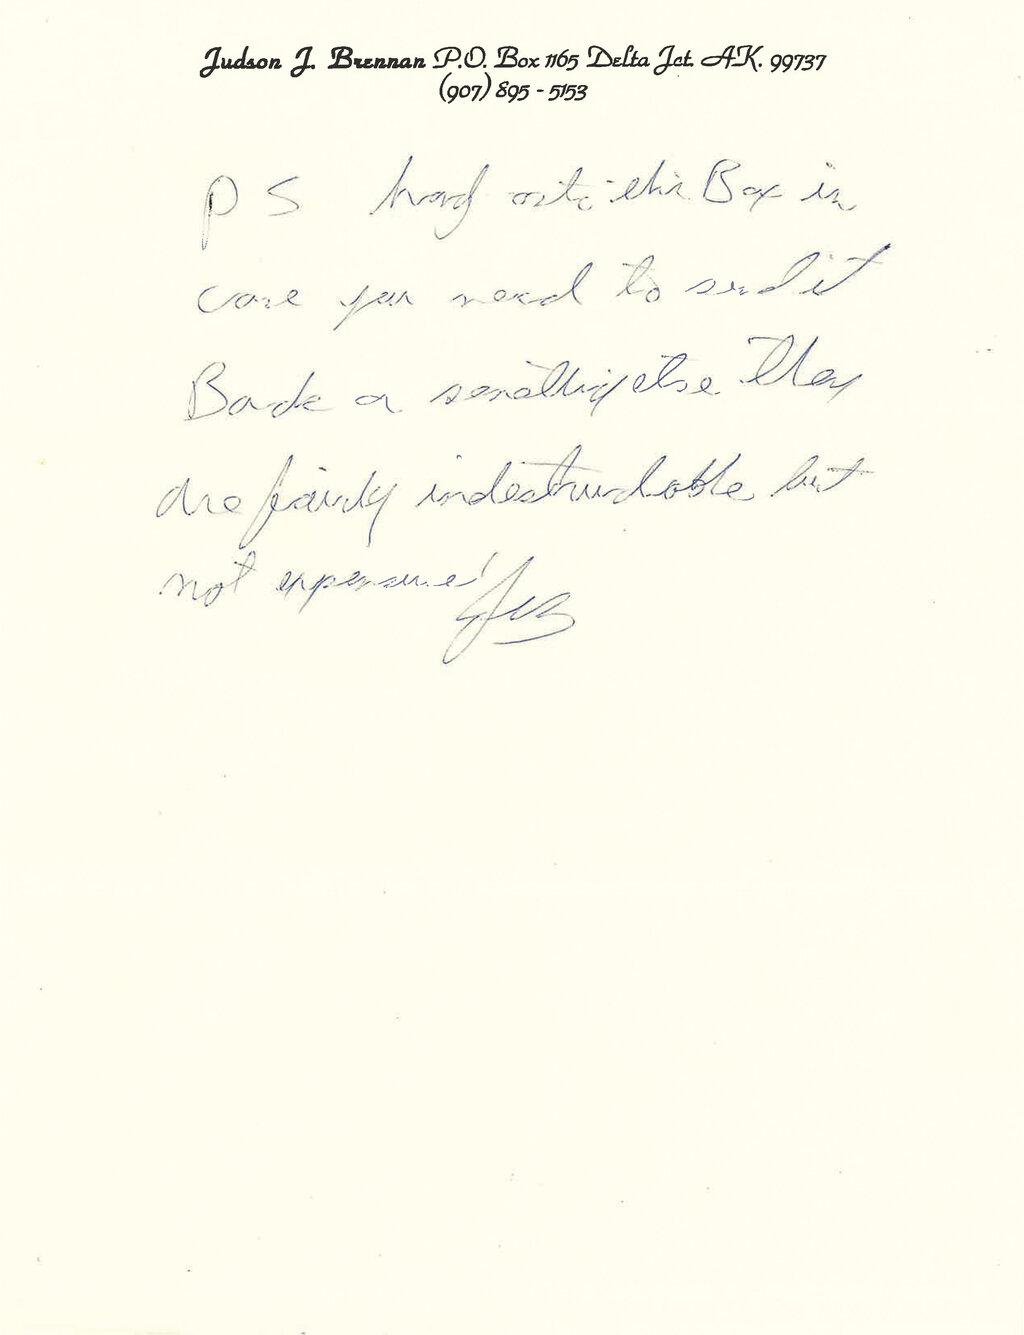 Judson J. Brennan P.O. Box 1165 Delta Jct. AK. 99737
(907) 895 - 5153
PS hang onto this Box in
case you need to send it
Back or something else They
are fairly indestructable but
not expensive! JJB